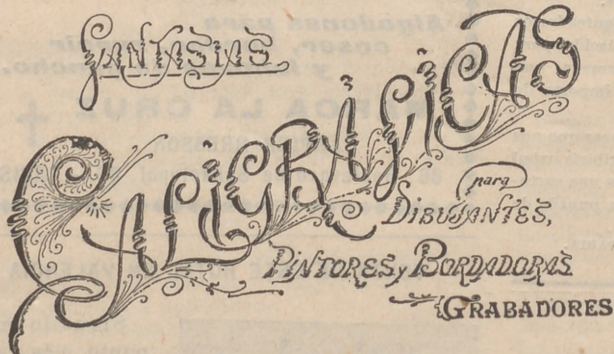 FANTASIAS
CALIGRÁFICAS
para
DIBUJANTES,
PINTORES y BORDADORAS
GRABADORES